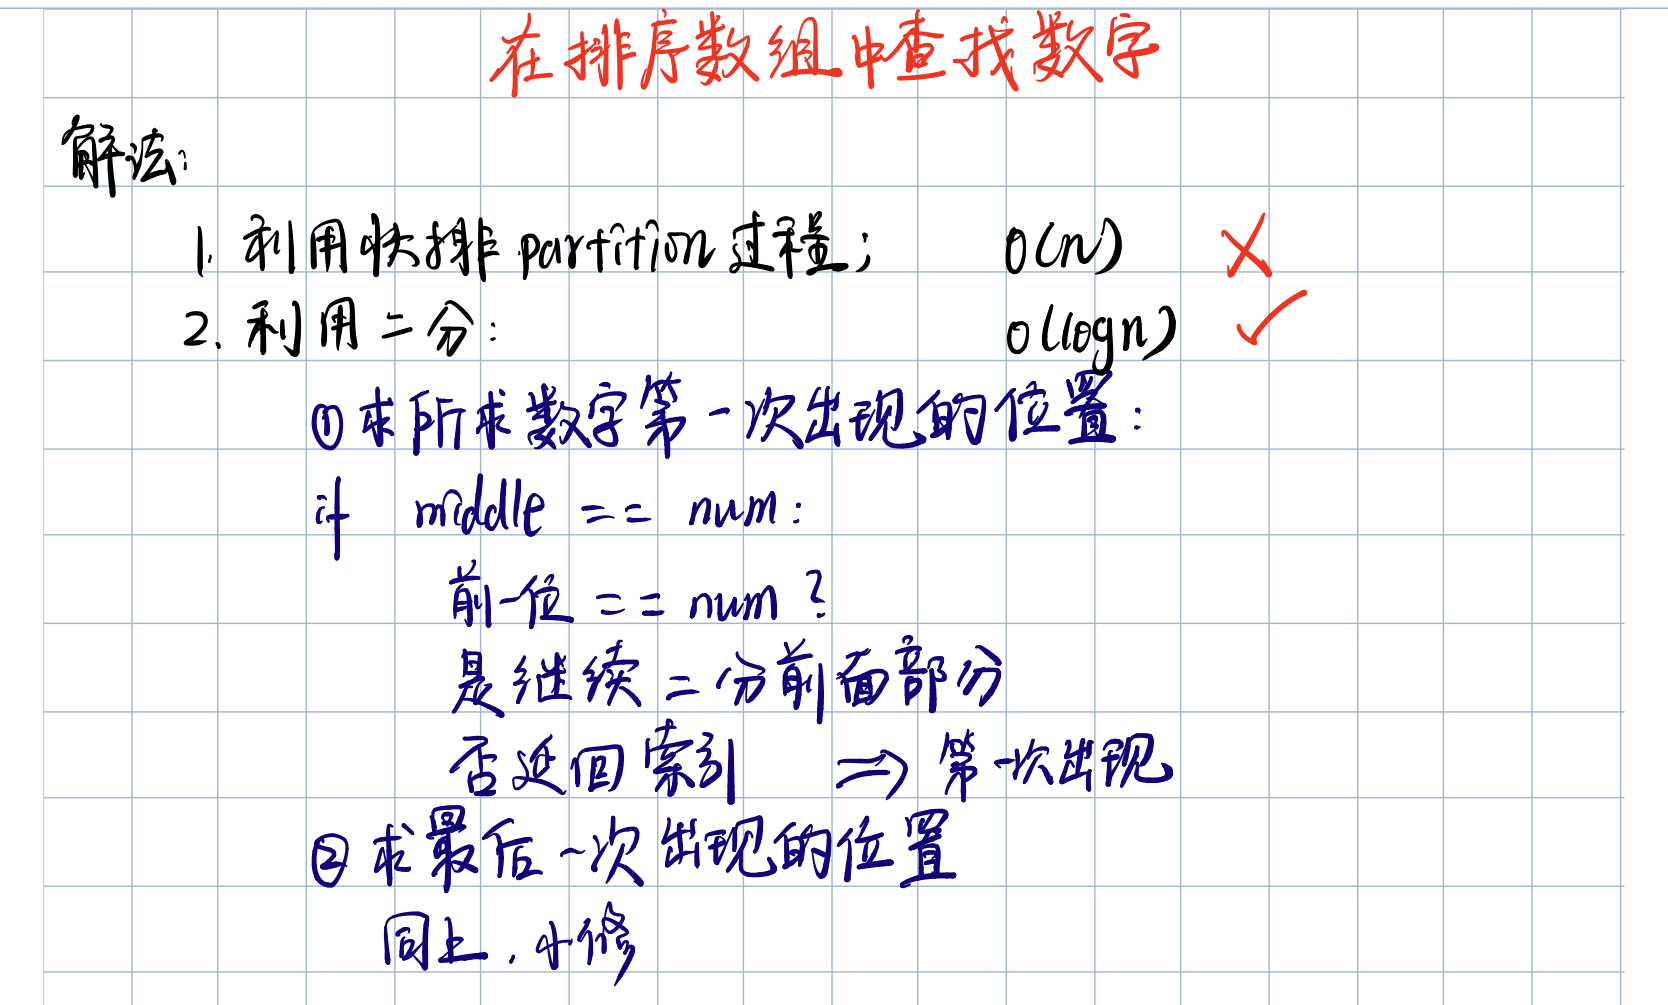 在排序数组中查找数字
解法:
1. 利用快排partition过程; O(n) ✗
2. 利用二分: O(logn) ✓
① 求所求数字第一次出现的位置:
if middle == num:
前一位 == num ?
是继续二分前面部分
否返回索引 ⇒ 第一次出现
② 求最后一次出现的位置
同上, 小修